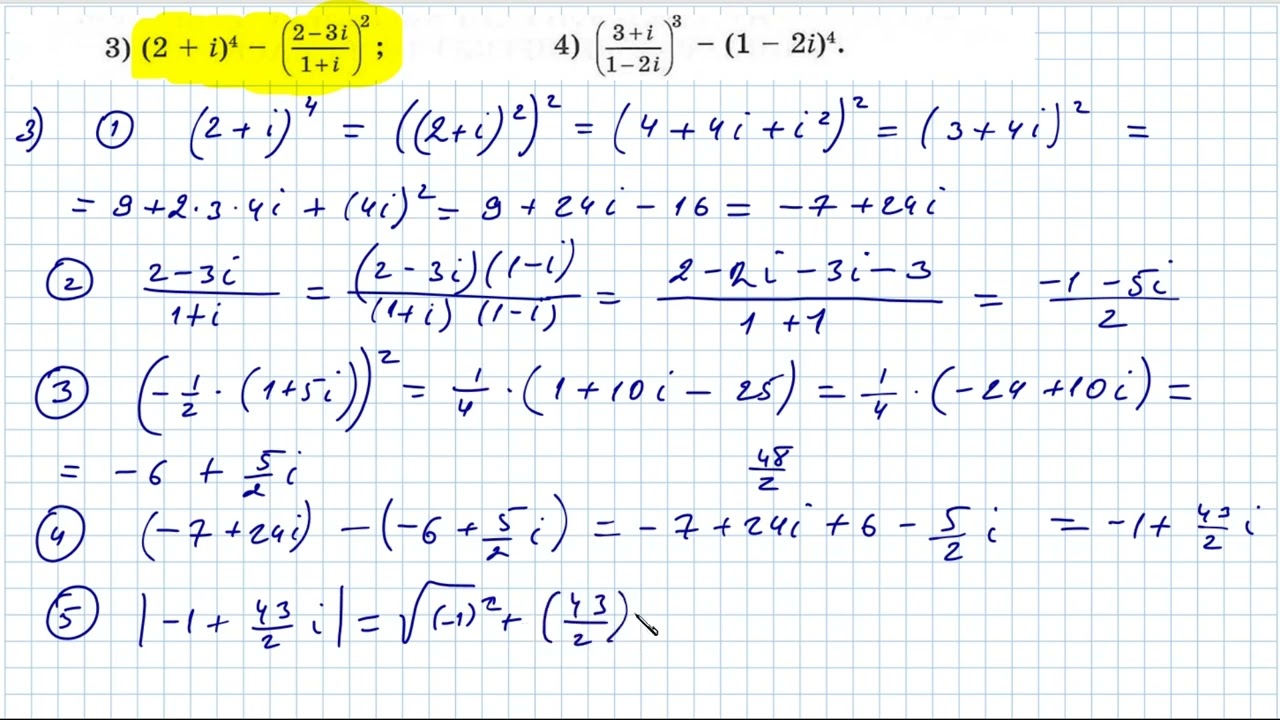 3) (2 + i)⁴ − ((2−3i)/(1+i))² ; 4) ((3+i)/(1−2i))³ − (1 − 2i)⁴.
3) ① (2+i)⁴ = ((2+i)²)² = (4+4i+i²)² = (3+4i)² =
= 9+2·3·4i + (4i)² = 9 + 24i − 16 = −7 + 24i
② (2−3i)/(1+i) = ((2−3i)(1−i))/((1+i)(1−i)) = (2−2i−3i−3)/(1+1) = (−1−5i)/2
③ (−1/2·(1+5i))² = 1/4·(1+10i−25) = 1/4·(−24+10i) =
= −6 + 5/2 i 48/2
④ (−7+24i) −(−6+5/2 i) = −7+24i+6−5/2 i = −1+ 43/2 i
⑤ |−1+ 43/2 i| = √(−1)² + (43/2)